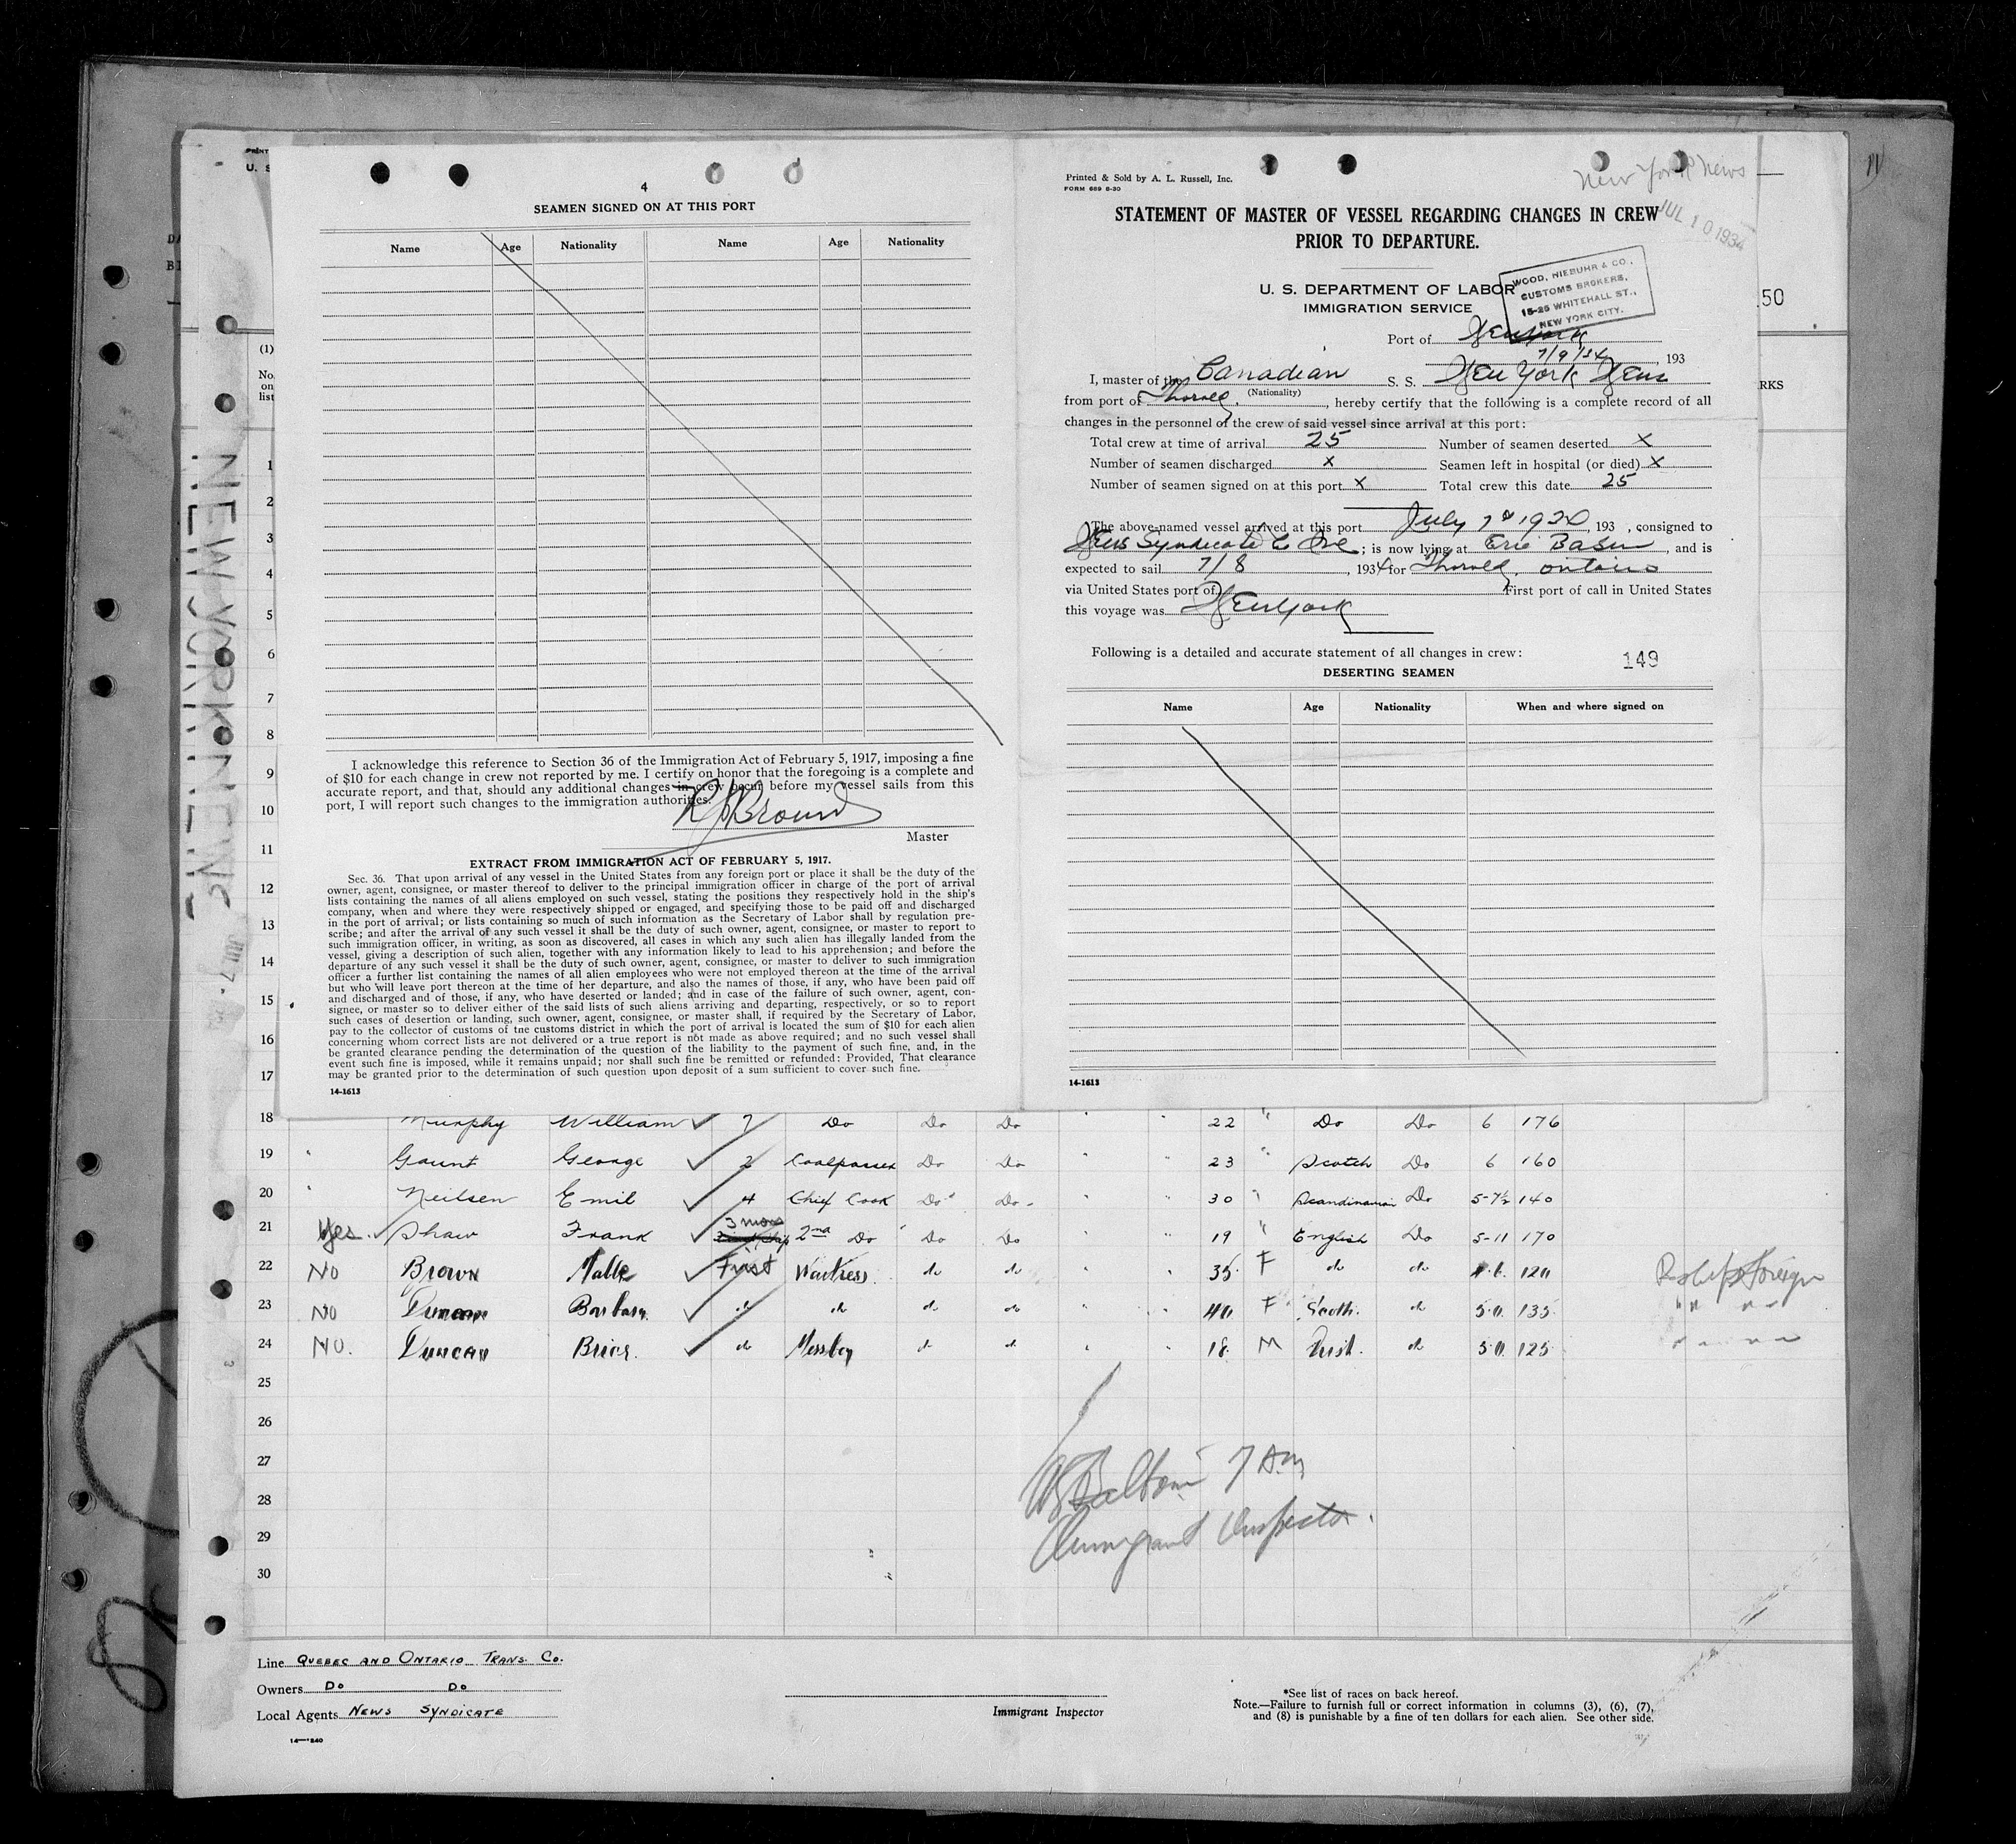 4
SEAMEN SIGNED ON AT THIS PORT
Name Age Nationality Name Age Nationality
I acknowledge this reference to Section 36 of the Immigration Act of February 5, 1917, imposing a fine
of $10 for each change in crew not reported by me. I certify on honor that the foregoing is a complete and
accurate report, and that, should any additional changes in crew occur before my vessel sails from this
port, I will report such changes to the immigration authorities.
Brown
Master
EXTRACT FROM IMMIGRATION ACT OF FEBRUARY 5, 1917.
Sec. 36. That upon arrival of any vessel in the United States from any foreign port or place it shall be the duty of the
owner, agent, consignee, or master thereof to deliver to the principal immigration officer in charge of the port of arrival
lists containing the names of all aliens employed on such vessel, stating the positions they respectively hold in the ship's
company, when and where they were respectively shipped or engaged, and specifying those to be paid off and discharged
in the port of arrival; or lists containing so much of such information as the Secretary of Labor shall by regulation pre-
scribe; and after the arrival of any such vessel it shall be the duty of such owner, agent, consignee, or master to report to
such immigration officer, in writing, as soon as discovered, all cases in which any such alien has illegally landed from the
vessel, giving a description of such alien, together with any information likely to lead to his apprehension; and before the
departure of any such vessel it shall be the duty of such owner, agent, consignee, or master to deliver to such immigration
officer a further list containing the names of all alien employees who were not employed thereon at the time of the arrival
but who will leave port thereon at the time of her departure, and also the names of those, if any, who have been paid off
and discharged and of those, if any, who have deserted or landed; and in case of the failure of such owner, agent, con-
signee, or master so to deliver either of the said lists of such aliens arriving and departing, respectively, or so to report
such cases of desertion or landing, such owner, agent, consignee, or master shall, if required by the Secretary of Labor,
pay to the collector of customs of tne customs district in which the port of arrival is located the sum of $10 for each alien
concerning whom correct lists are not delivered or a true report is not made as above required; and no such vessel shall
be granted clearance pending the determination of the question of the liability to the payment of such fine, and, in the
event such fine is imposed, while it remains unpaid; nor shall such fine be remitted or refunded: Provided, That clearance
may be granted prior to the determination of such question upon deposit of a sum sufficient to cover such fine.
14-1613
Printed & Sold by A. L. Russell, Inc.
FORM 689 6-30
New York News
JUL 10 1934
STATEMENT OF MASTER OF VESSEL REGARDING CHANGES IN CREW
PRIOR TO DEPARTURE.
U. S. DEPARTMENT OF LABOR
IMMIGRATION SERVICE
WOOD, NIEBUHR & CO.,
CUSTOMS BROKERS,
15-25 WHITEHALL ST.,
NEW YORK CITY.
Port of New York
7/9/34, 193
I, master of the Canadian S. S. New York News
(Nationality)
from port of Thorold, hereby certify that the following is a complete record of all
changes in the personnel of the crew of said vessel since arrival at this port:
Total crew at time of arrival 25 Number of seamen deserted X
Number of seamen discharged X Seamen left in hospital (or died) X
Number of seamen signed on at this port X Total crew this date 25
The above-named vessel arrived at this port July 7, 193 , consigned to
News Syndicate Co Inc; is now lying at Erie Basin, and is
expected to sail 7/8, 1934 for Thorold, Ontario
via United States port of First port of call in United States
this voyage was New York
Following is a detailed and accurate statement of all changes in crew:
149
DESERTING SEAMEN
Name Age Nationality When and where signed on
14-1613
U. S
(1)
No.
on
list
50
RKS
NEW YORK NEWS
1
2
3
4
5
6
7
8
9
10
11
12
13
14
15
16
17
18 Murphy William 7 Do Do Do 22 " Do Do 6 176
19 " Gaunt George 2 Coalpasser Do Do " " 23 " Scotch Do 6 160
20 " Neilsen Emil 4 Chief Cook Do Do " " 30 " Scandinavian Do 5-7½ 140
21 Yes Shaw Frank 3 mos 2nd Do Do Do " 19 " English Do 5-11 170
22 No Brown First Waitress do do 35 F do do 120
23 No Duncan Barbara do do do do 40 F Scoth. do 5.0. 135
24 No. Duncan do Messboy do do 18 M Irish. do 5.11. 125
25
26
27
28
29
30
7 Am
Immigrant Inspector.
Line QUEBEC AND ONTARIO TRANS. CO.
Owners DO DO
Local Agents NEWS SYNDICATE
14-1240
Immigrant Inspector
*See list of races on back hereof.
Note.—Failure to furnish full or correct information in columns (3), (6), (7),
and (8) is punishable by a fine of ten dollars for each alien. See other side.